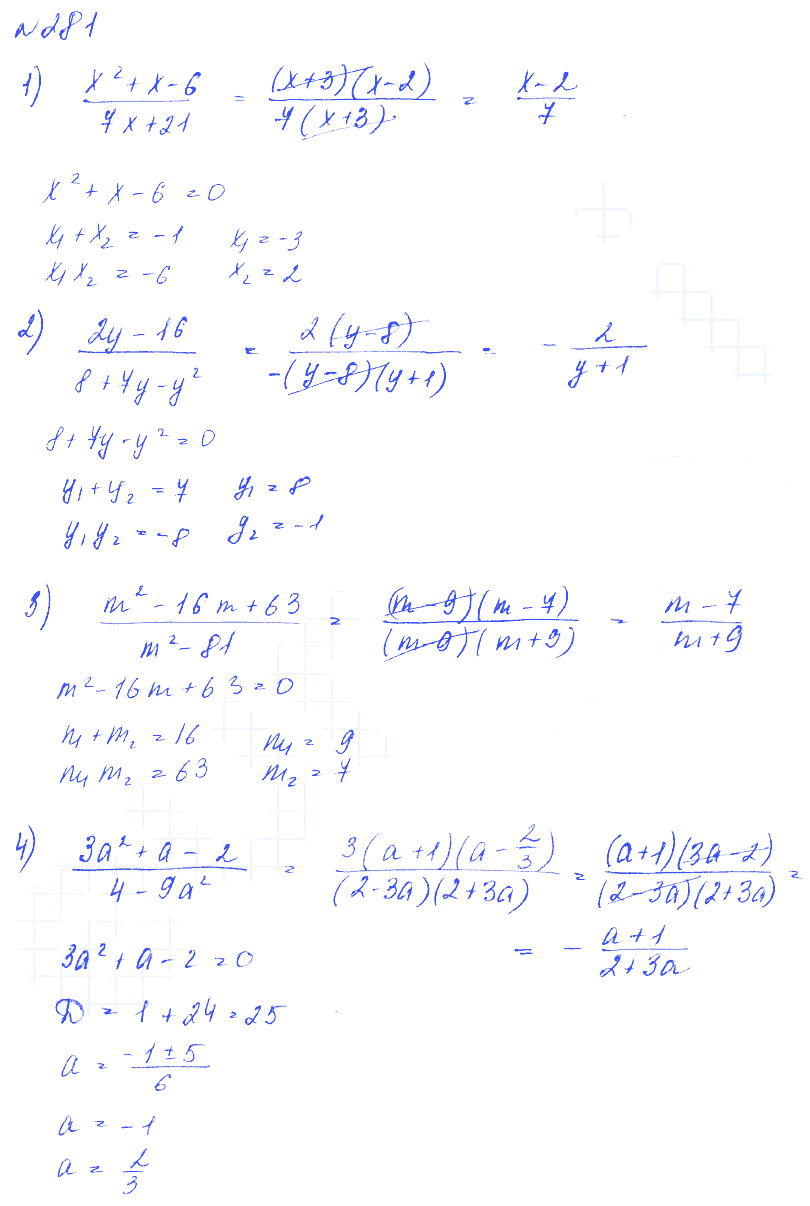 №281
1) (x² + x - 6)/(7x + 21) = ((x+3)(x-2))/(7(x+3)) = (x-2)/7
x² + x - 6 = 0
x₁ + x₂ = -1 x₁ = -3
x₁x₂ = -6 x₂ = 2
2) (2y - 16)/(8 + 7y - y²) = (2(y-8))/(-(y-8)(y+1)) = - 2/(y+1)
8 + 7y - y² = 0
y₁ + y₂ = 7 y₁ = 8
y₁y₂ = -8 y₂ = -1
3) (m² - 16m + 63)/(m² - 81) = ((m-9)(m-7))/((m-9)(m+9)) = (m-7)/(m+9)
m² - 16m + 63 = 0
m₁ + m₂ = 16 m₁ = 9
m₁m₂ = 63 m₂ = 7
4) (3a² + a - 2)/(4 - 9a²) = (3(a+1)(a - 2/3))/((2-3a)(2+3a)) = ((a+1)(3a-2))/((2-3a)(2+3a)) =
= - (a+1)/(2+3a)
3a² + a - 2 = 0
D = 1 + 24 = 25
a = (-1 ± 5)/6
a = -1
a = 2/3